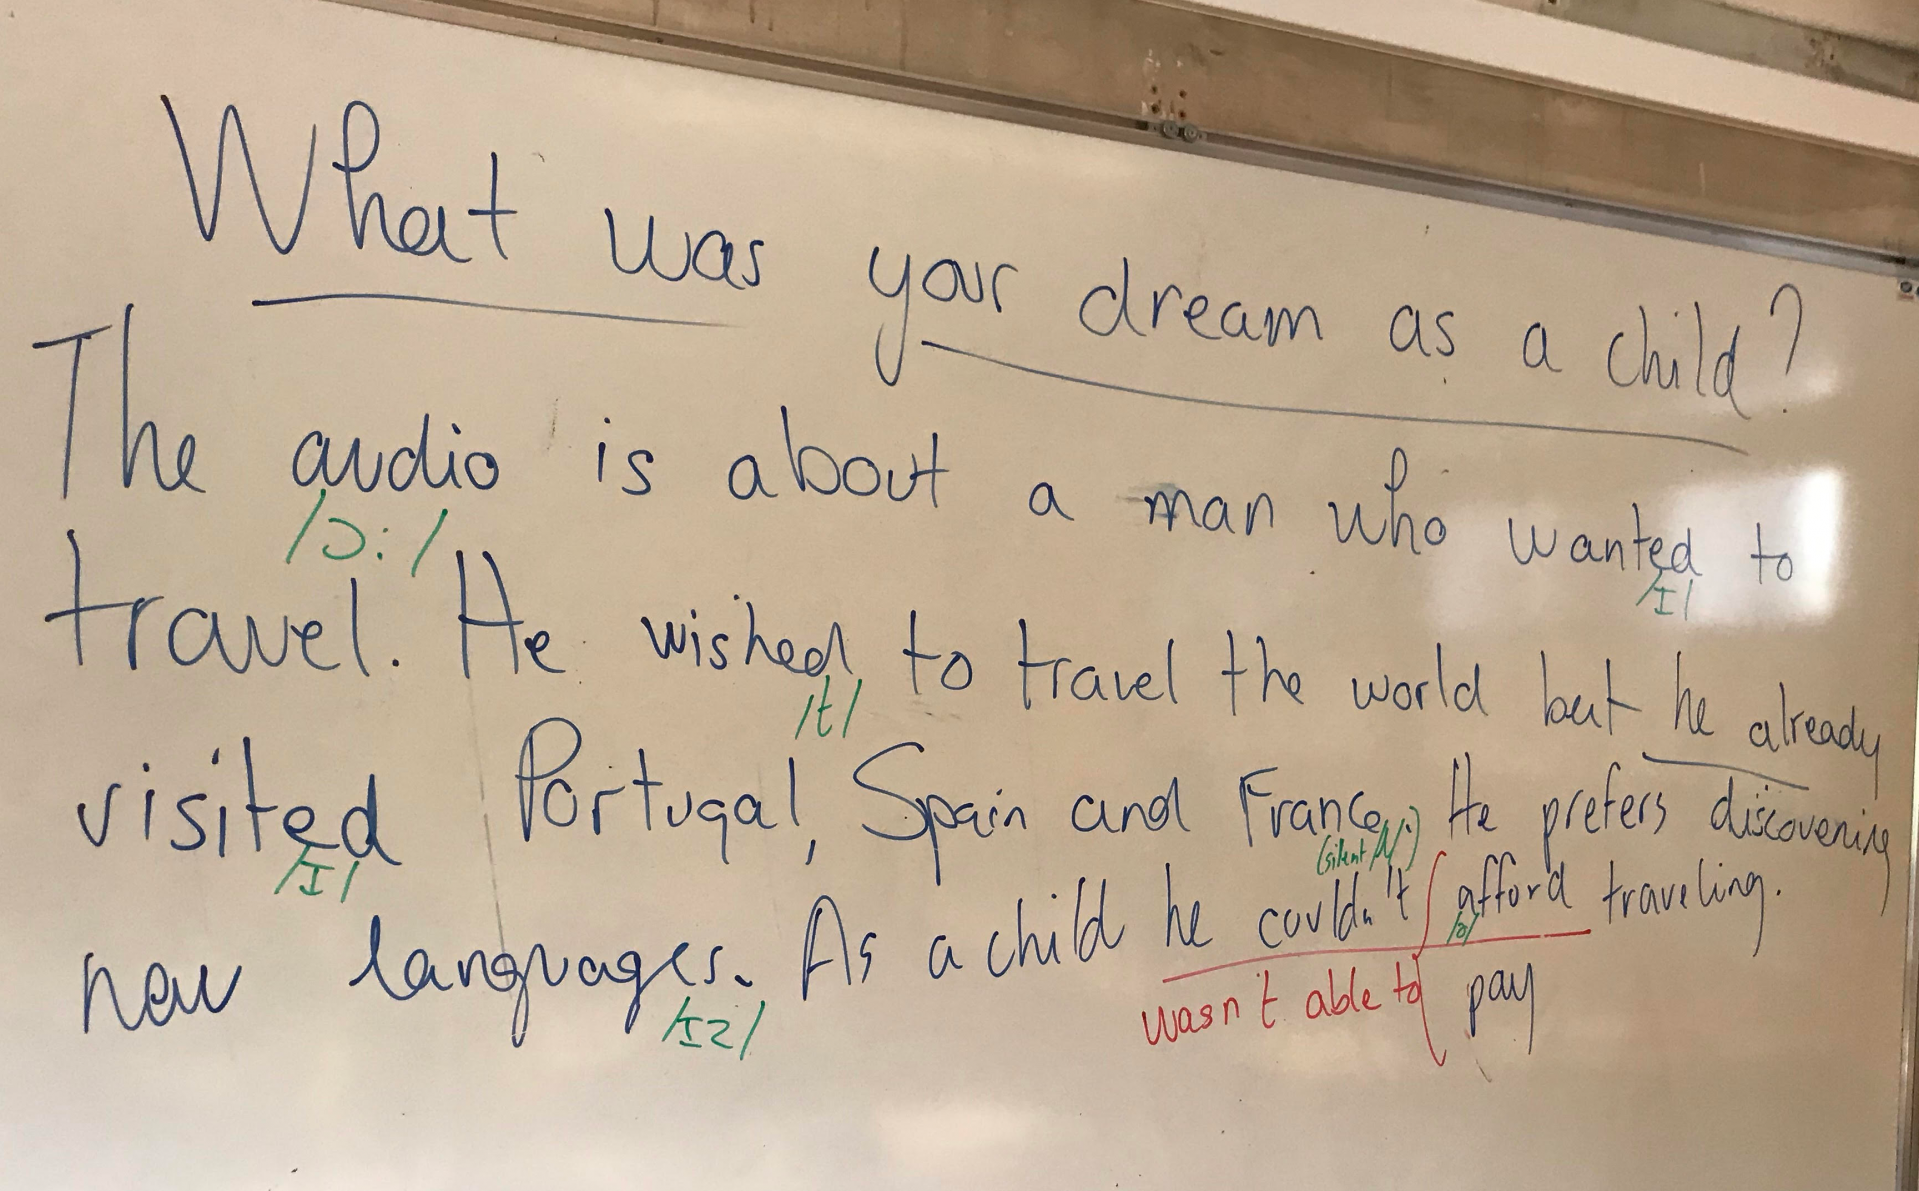 What was your dream as a child?
The audio is about a man who wanted to
/ɔ:/
/I/
travel. He wished to travel the world but he already
/t/
visited Portugal, Spain and France. He prefers discovering
/I/
(silent /l/)
new languages. As a child he couldn't afford traveling.
/ɪz/
/ə/
wasn't able to pay